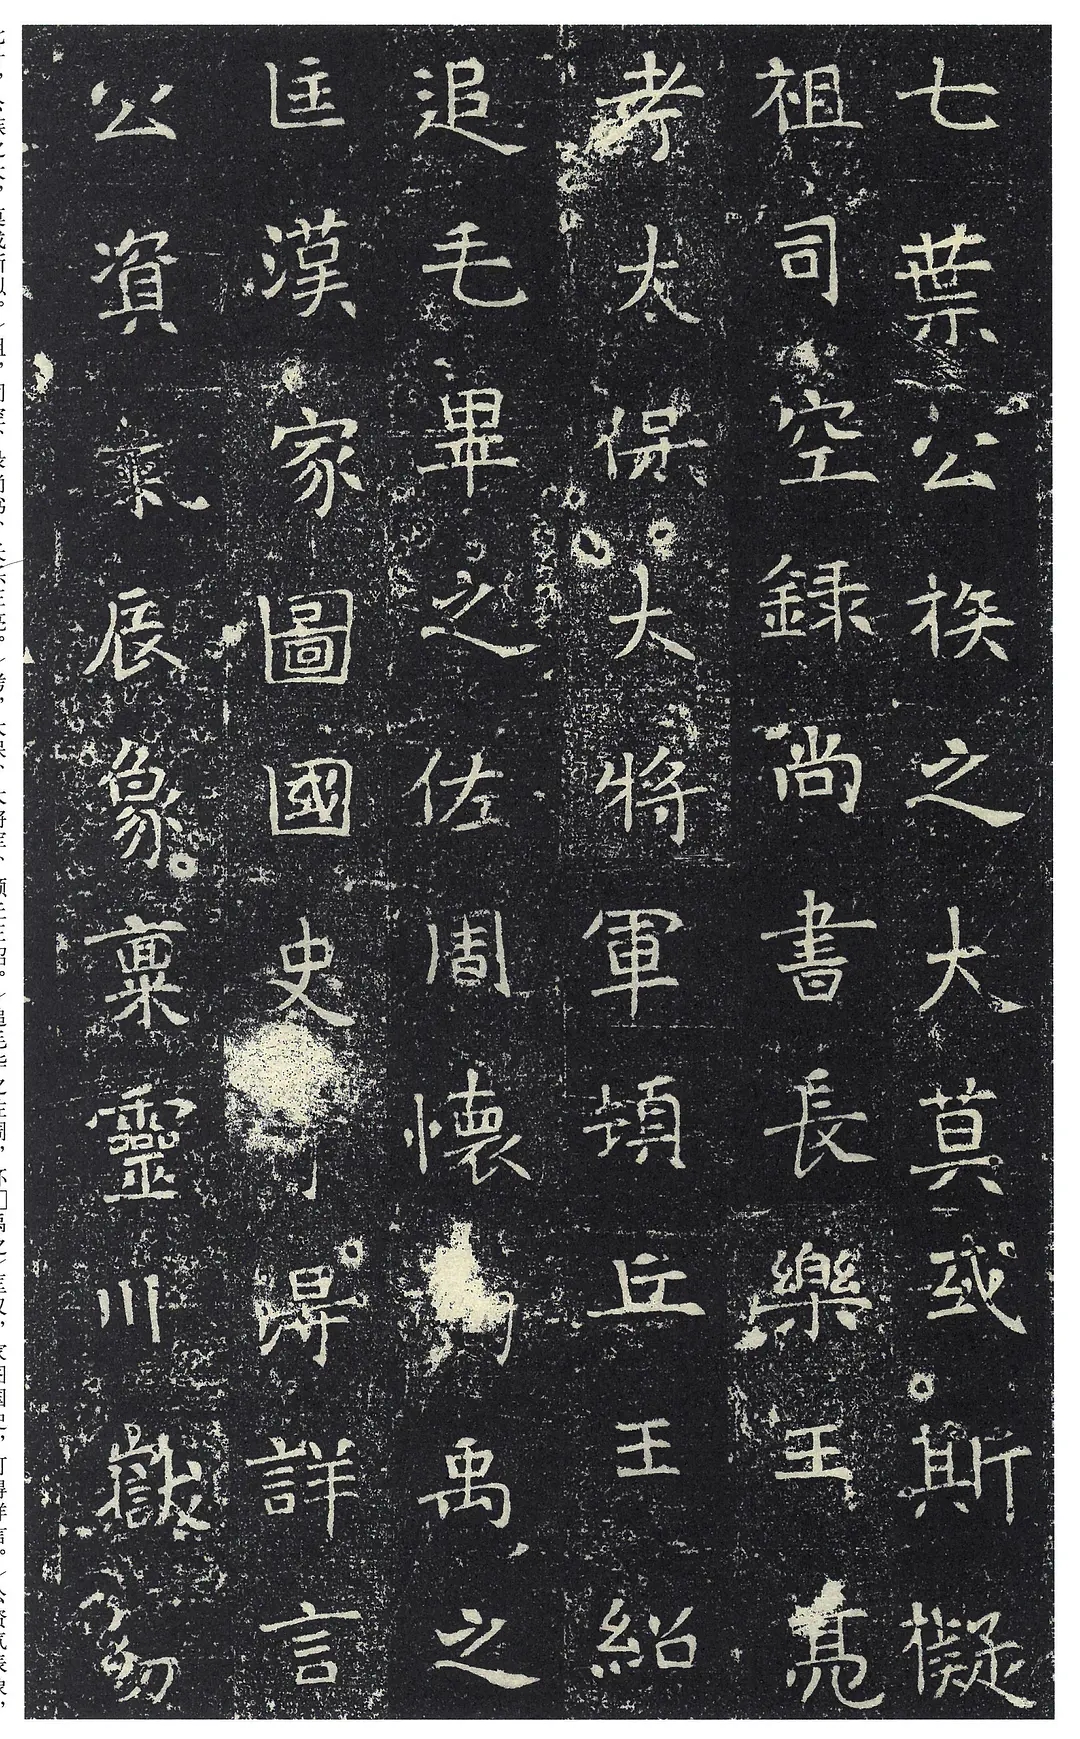 七葉公族之大莫或斯擬
祖司空錄尚書長樂王亮
考太保大將軍頓丘王紹
追毛畢之佐周懷禹之
匡漢家圖國史可得詳言
公資氣辰象稟靈川嶽